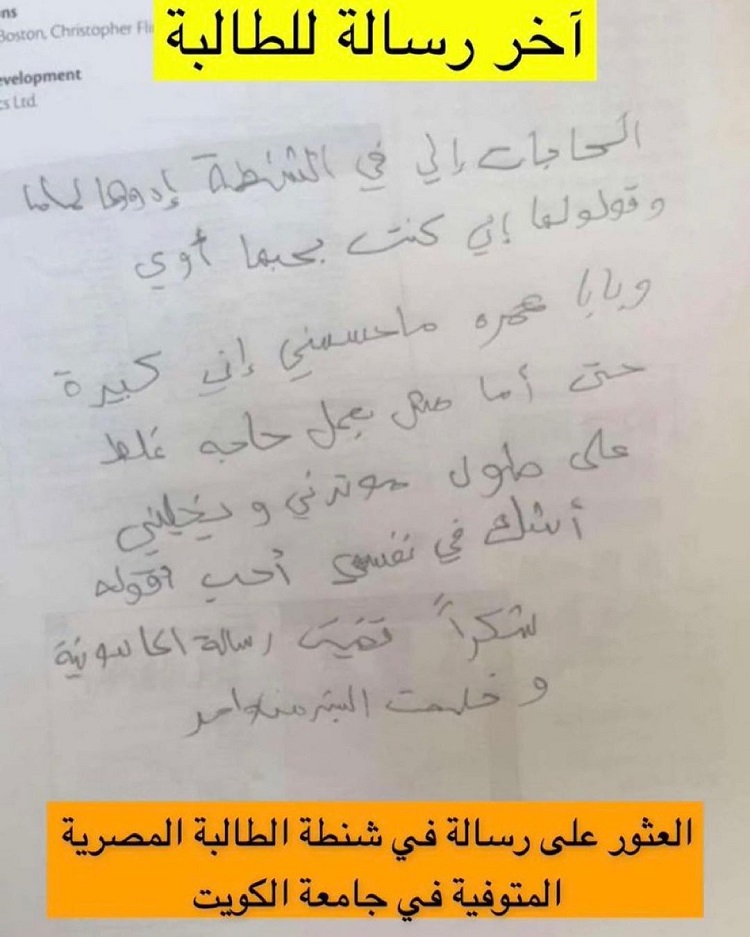 ns
Boston, Christopher Fli
evelopment
cs Ltd.
آخر رسالة للطالبة
الحاجات إلي في الشنطة إدوها لماما
وقولولها إني كنت بحبها أوي
وبابا عمره ماحسسني إني كبيرة
حتى أما مش بعمل حاجه غلط
على طول موترني ويخليني
أشك في نفسي أحب أقوله
شكراً قضيت رسالة
و خلصت
العثور على رسالة في شنطة الطالبة المصرية
المتوفية في جامعة الكويت